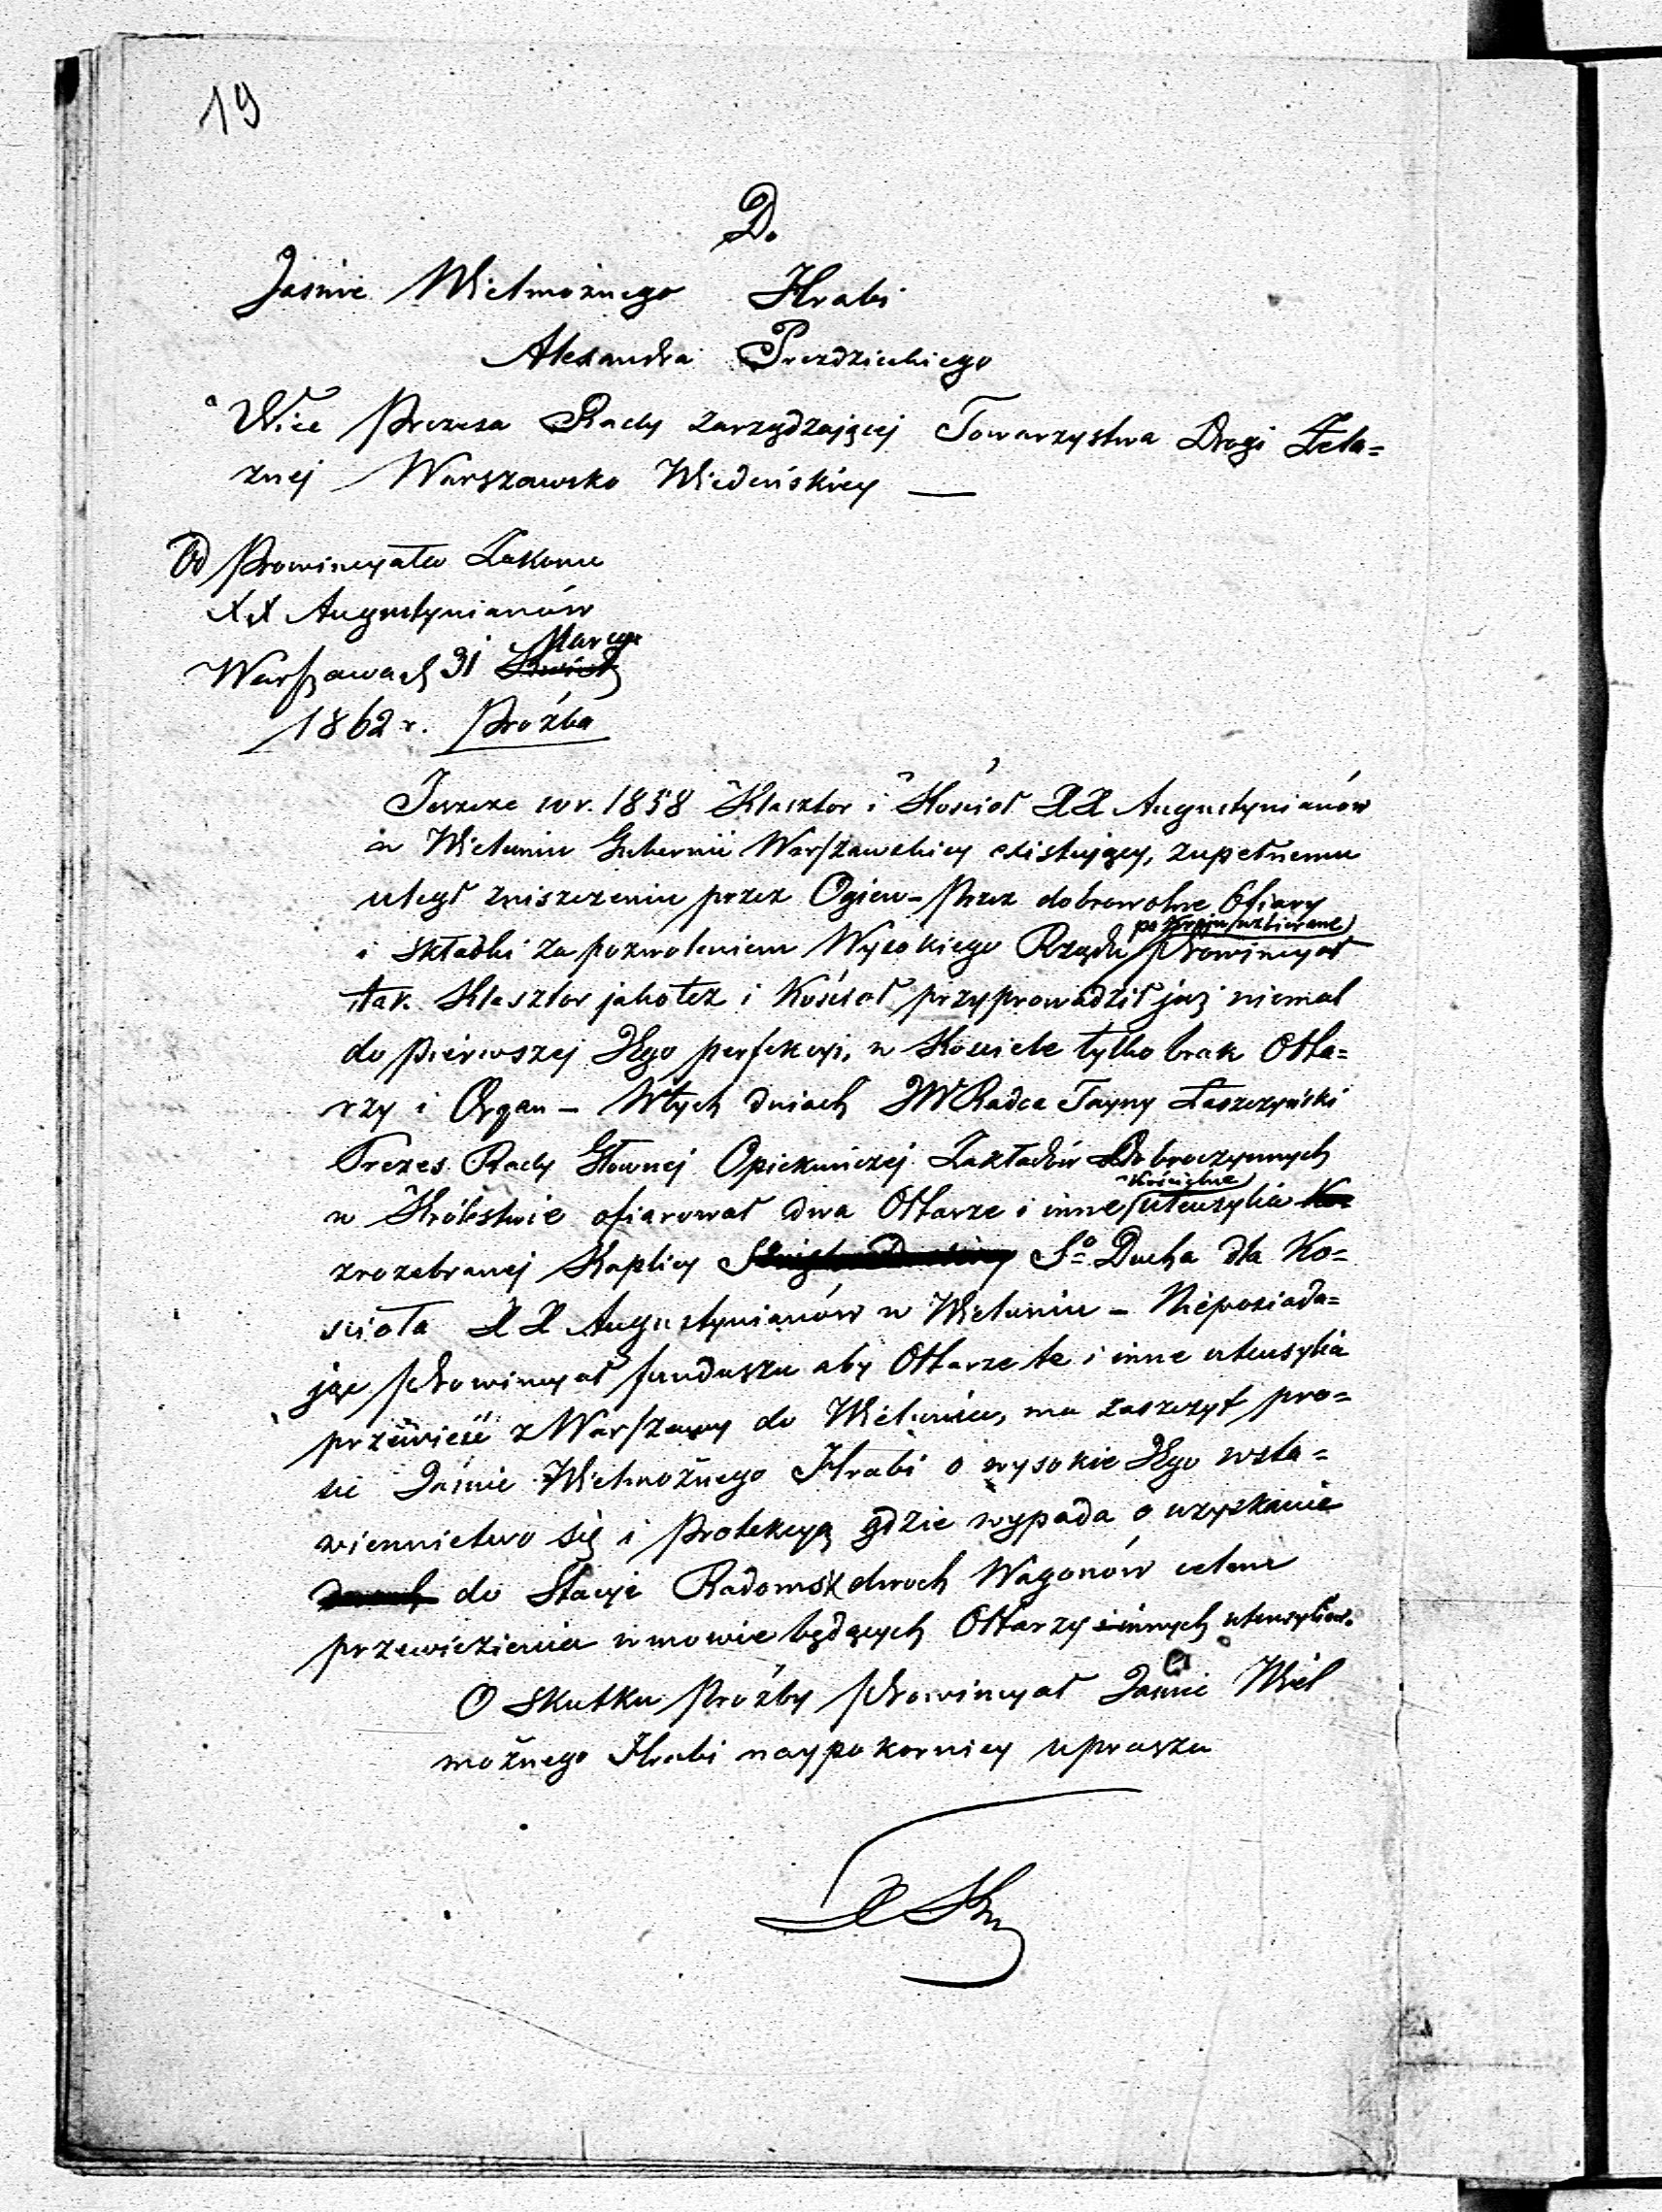 19
D.
Jaśnie Wielmożnego Hrabi
Alexandra Przezdzieckiego
Wice Prezesa Rady Zarządzającej Towarzystwa Drogi Żela=
znej Warszawsko Wiedeńskiey —
Od Prowincyała Zakonu
XX Augustynianów
Marca
Warszawa d 31
1862 r. Proźba
Jeszcze w r. 1858 Klasztor i Kościoł XX Augustynianów
w Wieluniu Gubernii Warszawskiey existujący, zupełnemu
uległ zniszczeniu przez Ogień – Przez dobrowolne Ofiary
po Kraju uzbierane
i składki za pozwoleniem Wysokiego Rządu Prowincyał
tak Klasztor jakoteż i Kościoł przyprowadził już niemal
do pierwszej Jego perfekcyi, w Kościele tylko brak Ołta=
rzy i Organ – W tych dniach JW Radca Tayny Łaszczyński
Prezes Rady Głownej Opiekuńczej Zakładów Dobroczynnych
Kościelne
w Królestwie ofiarował dwa Ołtarze i inne utensylia
z rozebranej Kaplicy So Ducha dla Ko=
scioła XX Augustynianów w Wieluniu – Nieposiada=
jąc Prowincyał funduszu aby Ołtarze te i inne utensylia
przewieść z Warszawy do Wielunia, ma zaszczyt pro=
sić Jaśnie Wielmożnego Hrabi o wysokie Jego wsta=
wiennictwo się i Protekcyą gdzie wypada o uzyskanie
do Stacyi Radomsk dwoch Wagonów celem
przewiezienia w mowie będących Ołtarzy i innych utensyliow.
O skutku Proźby Prowincyał Jaśnie Wiel
możnego Hrabi naypokorniey uprasza